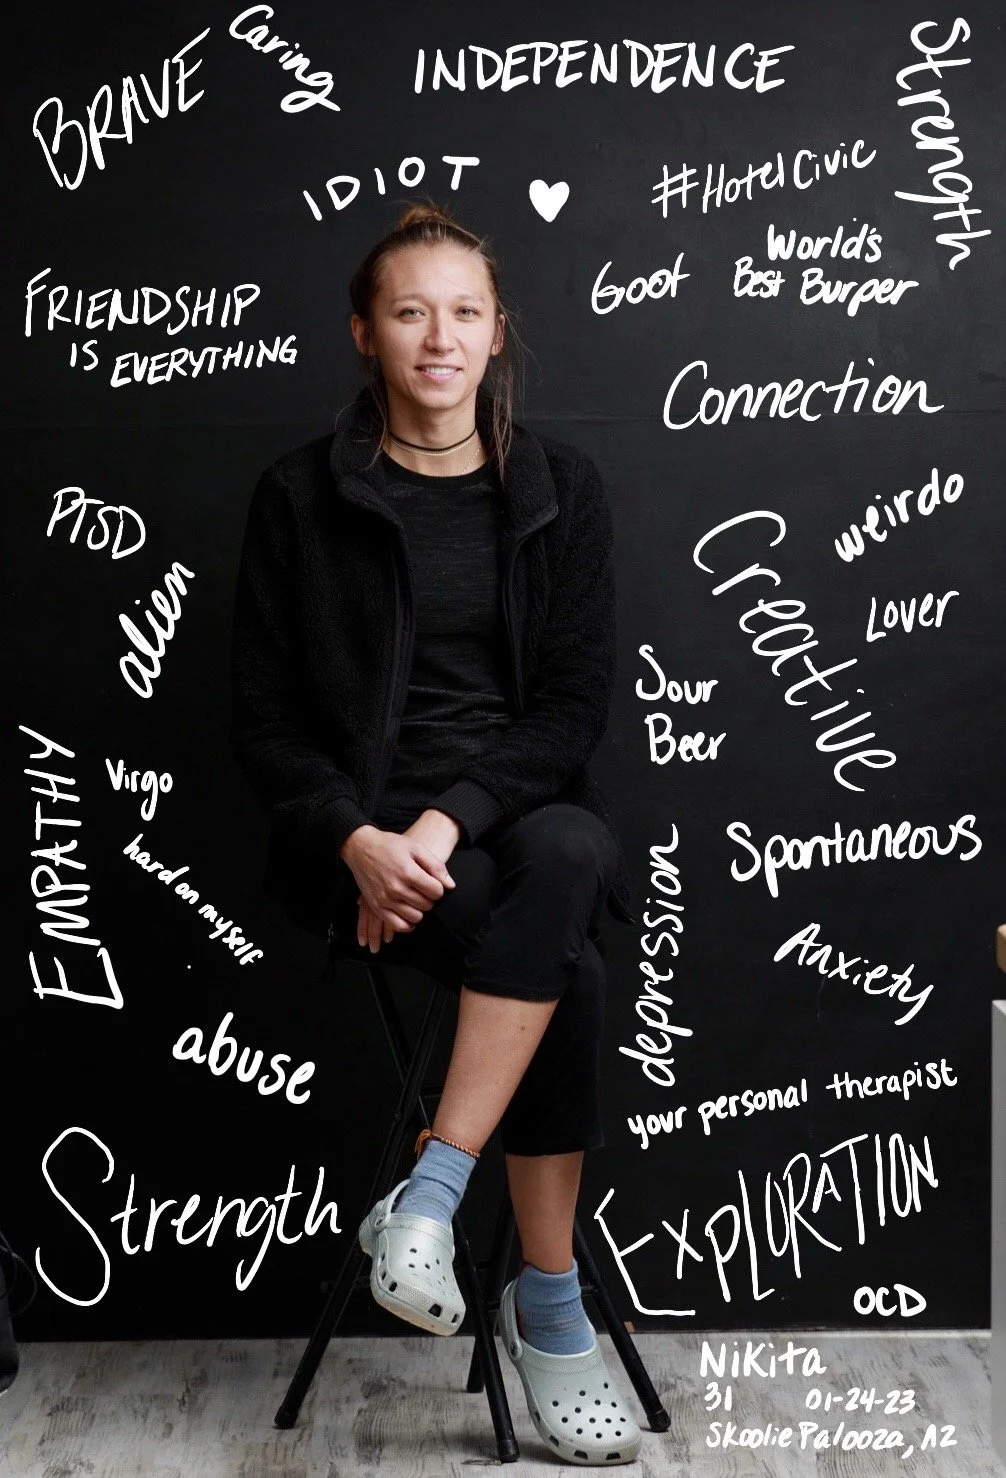 BRAVE
Caring
INDEPENDENCE
Strength
IDIOT
#HotelCivic
World's
Best Burper
Goof
FRIENDSHIP
IS EVERYTHING
Connection
PTSD
weirdo
alien
Creative
Lover
Sour
Beer
EMPATHY
Virgo
hard on myself
Spontaneous
depression
Anxiety
abuse
your personal therapist
Strength
EXPLORATION
OCD
NiKita
31 01-24-23
Skoolie Palooza, AZ